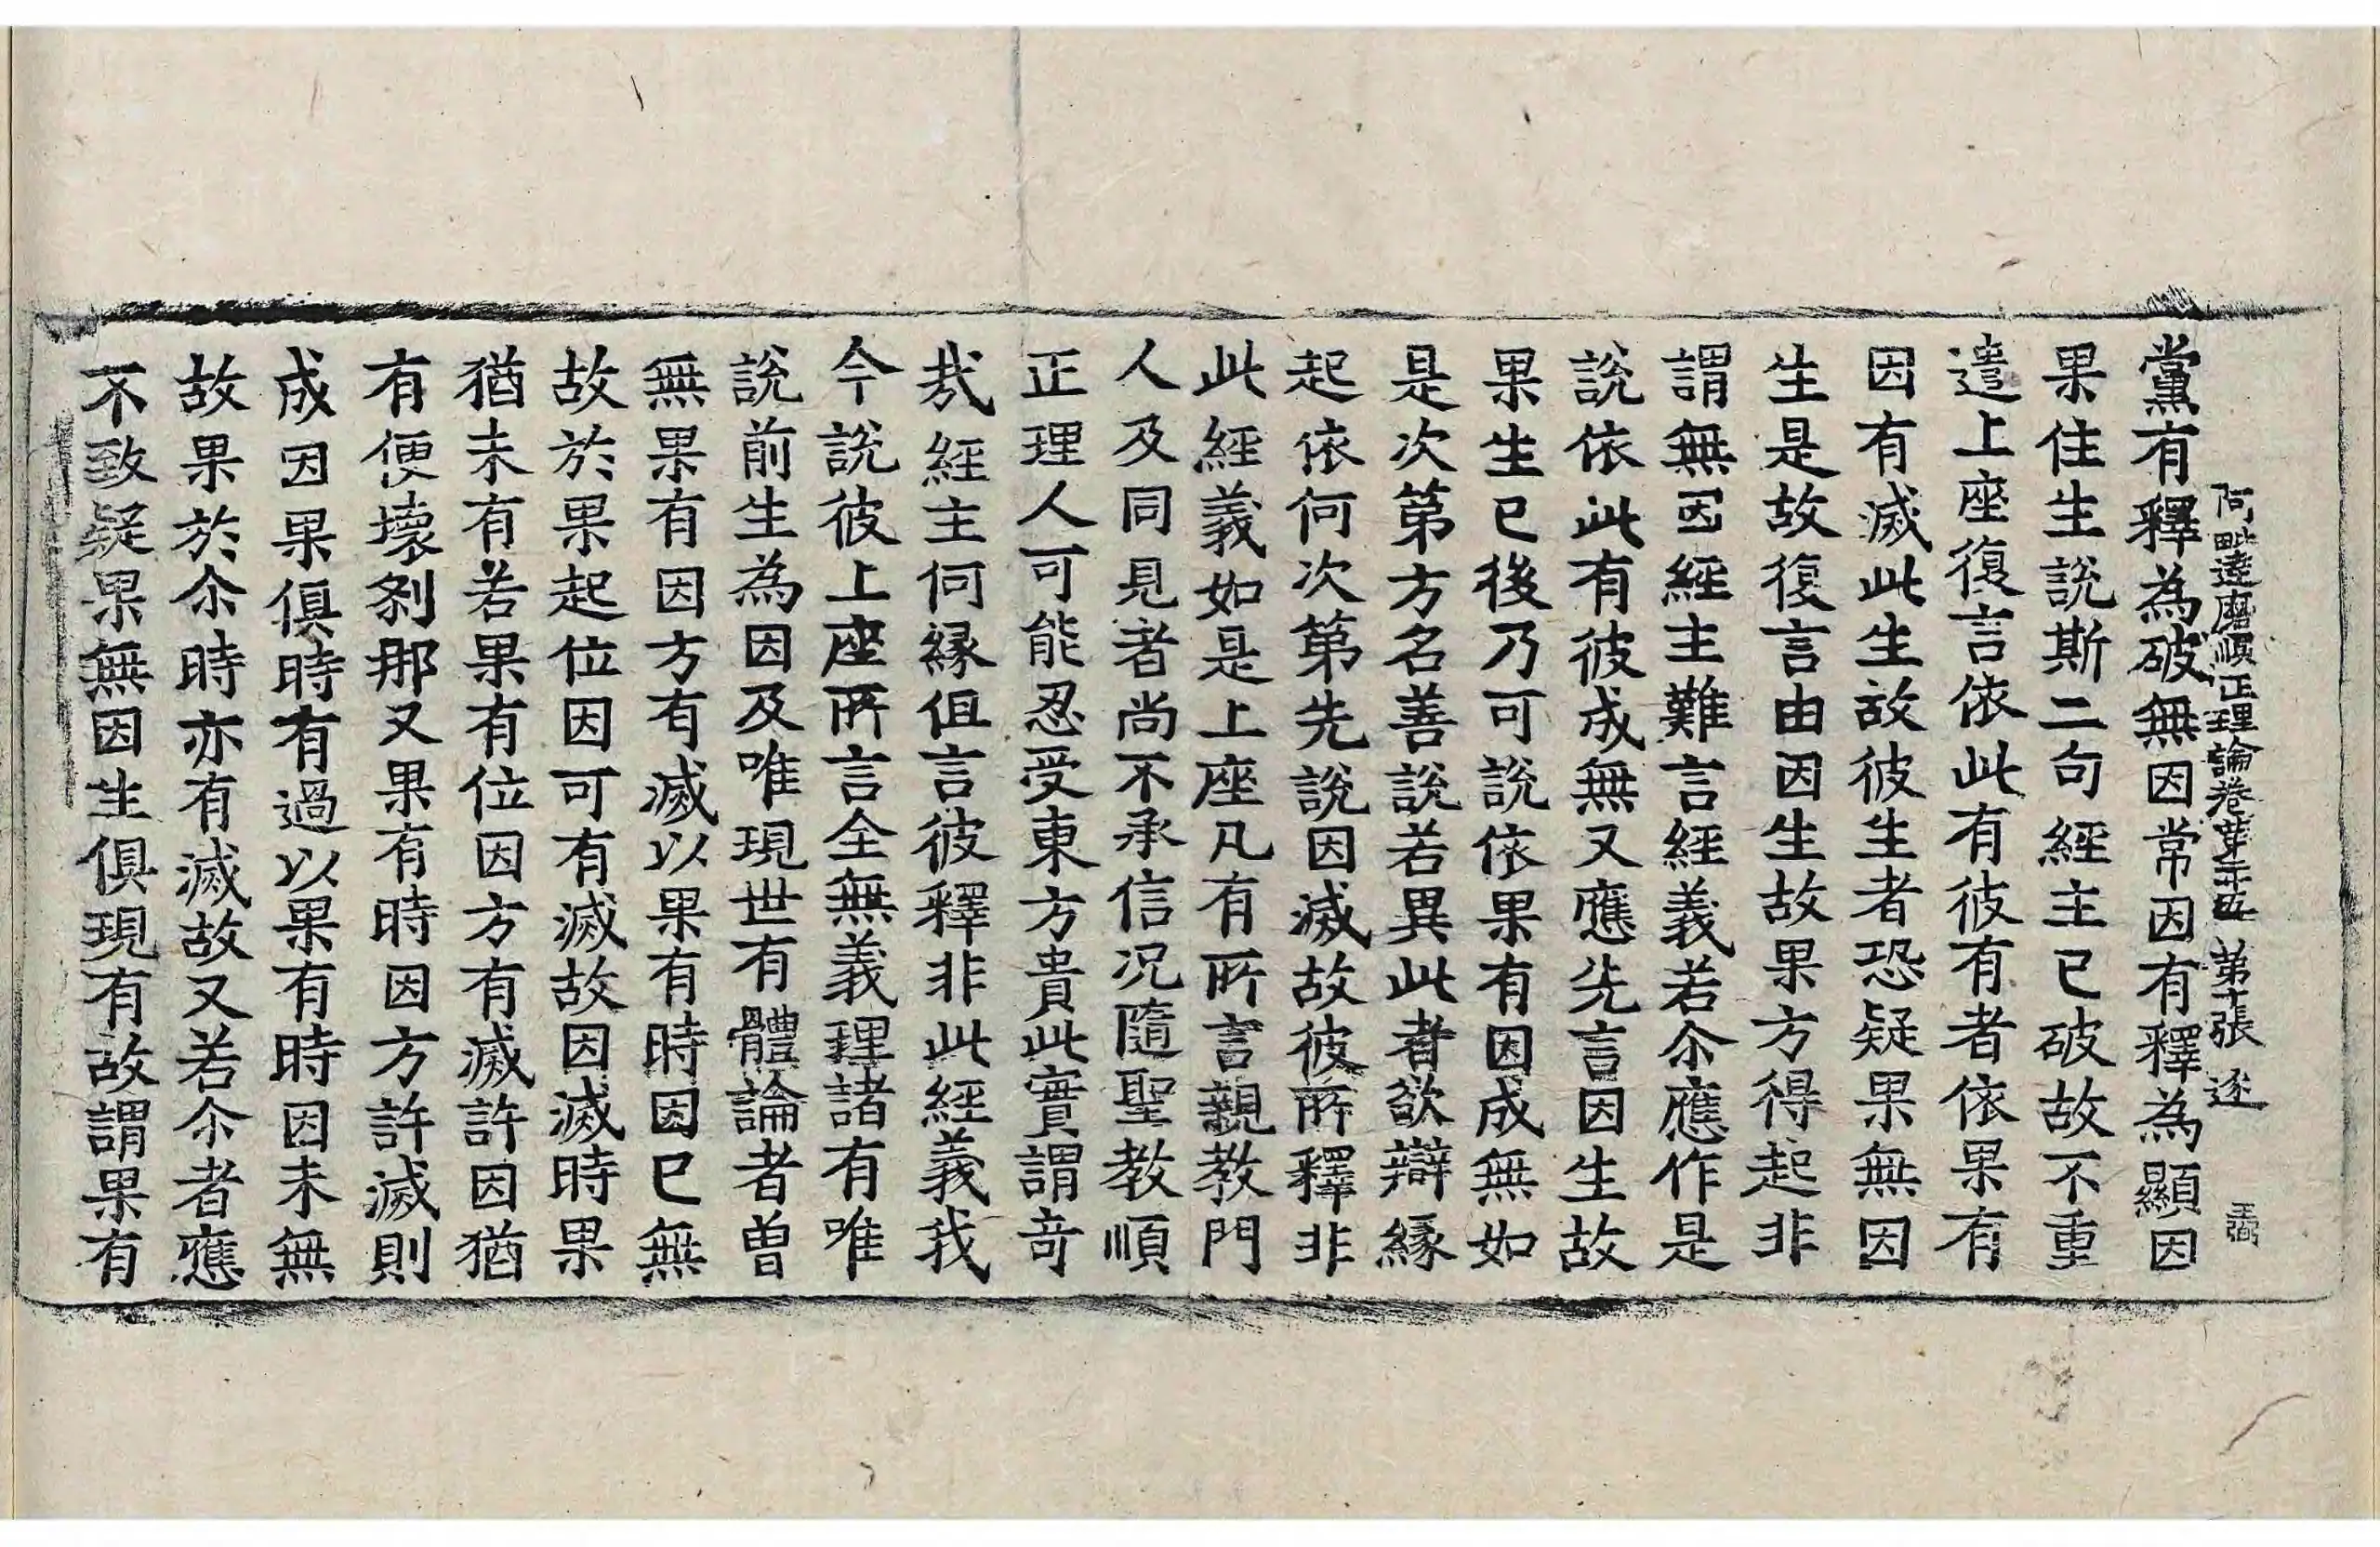 黨有釋為破無因常因有釋為顯因
阿毗達磨順正理論卷第二十五 第十張 逐
果住生說斯二句經主已破故不重
遣上座復言依此有彼有者依果有
因有滅此生故彼生者恐疑果無因
生是故復言由因生故果方得起非
謂無因經主難言經義若尒應作是
說依此有彼成無又應先言因生故
果生已後乃可說依果有因成無如
是次第方名善說若異此者欲辯緣
起依何次第先說因滅故彼所釋非
此經義如是上座凡有所言親教門
人及同見者尚不承信况隨聖教順
正理人可能忍受東方貴此實謂奇
㢤經主何緣伹言彼釋非此經義我
今說彼上座所言全無義理諸有唯
說前生為因及唯現世有體論者曾
無果有因方有滅以果有時因已無
故於果起位因可有滅故因滅時果
猶未有若果有位因方有滅許因猶
有便壞剎那又果有時因方許滅則
成因果俱時有過以果有時因未無
故果於尒時亦有滅故又若尒者應
不致疑果無因生俱現有故謂果有